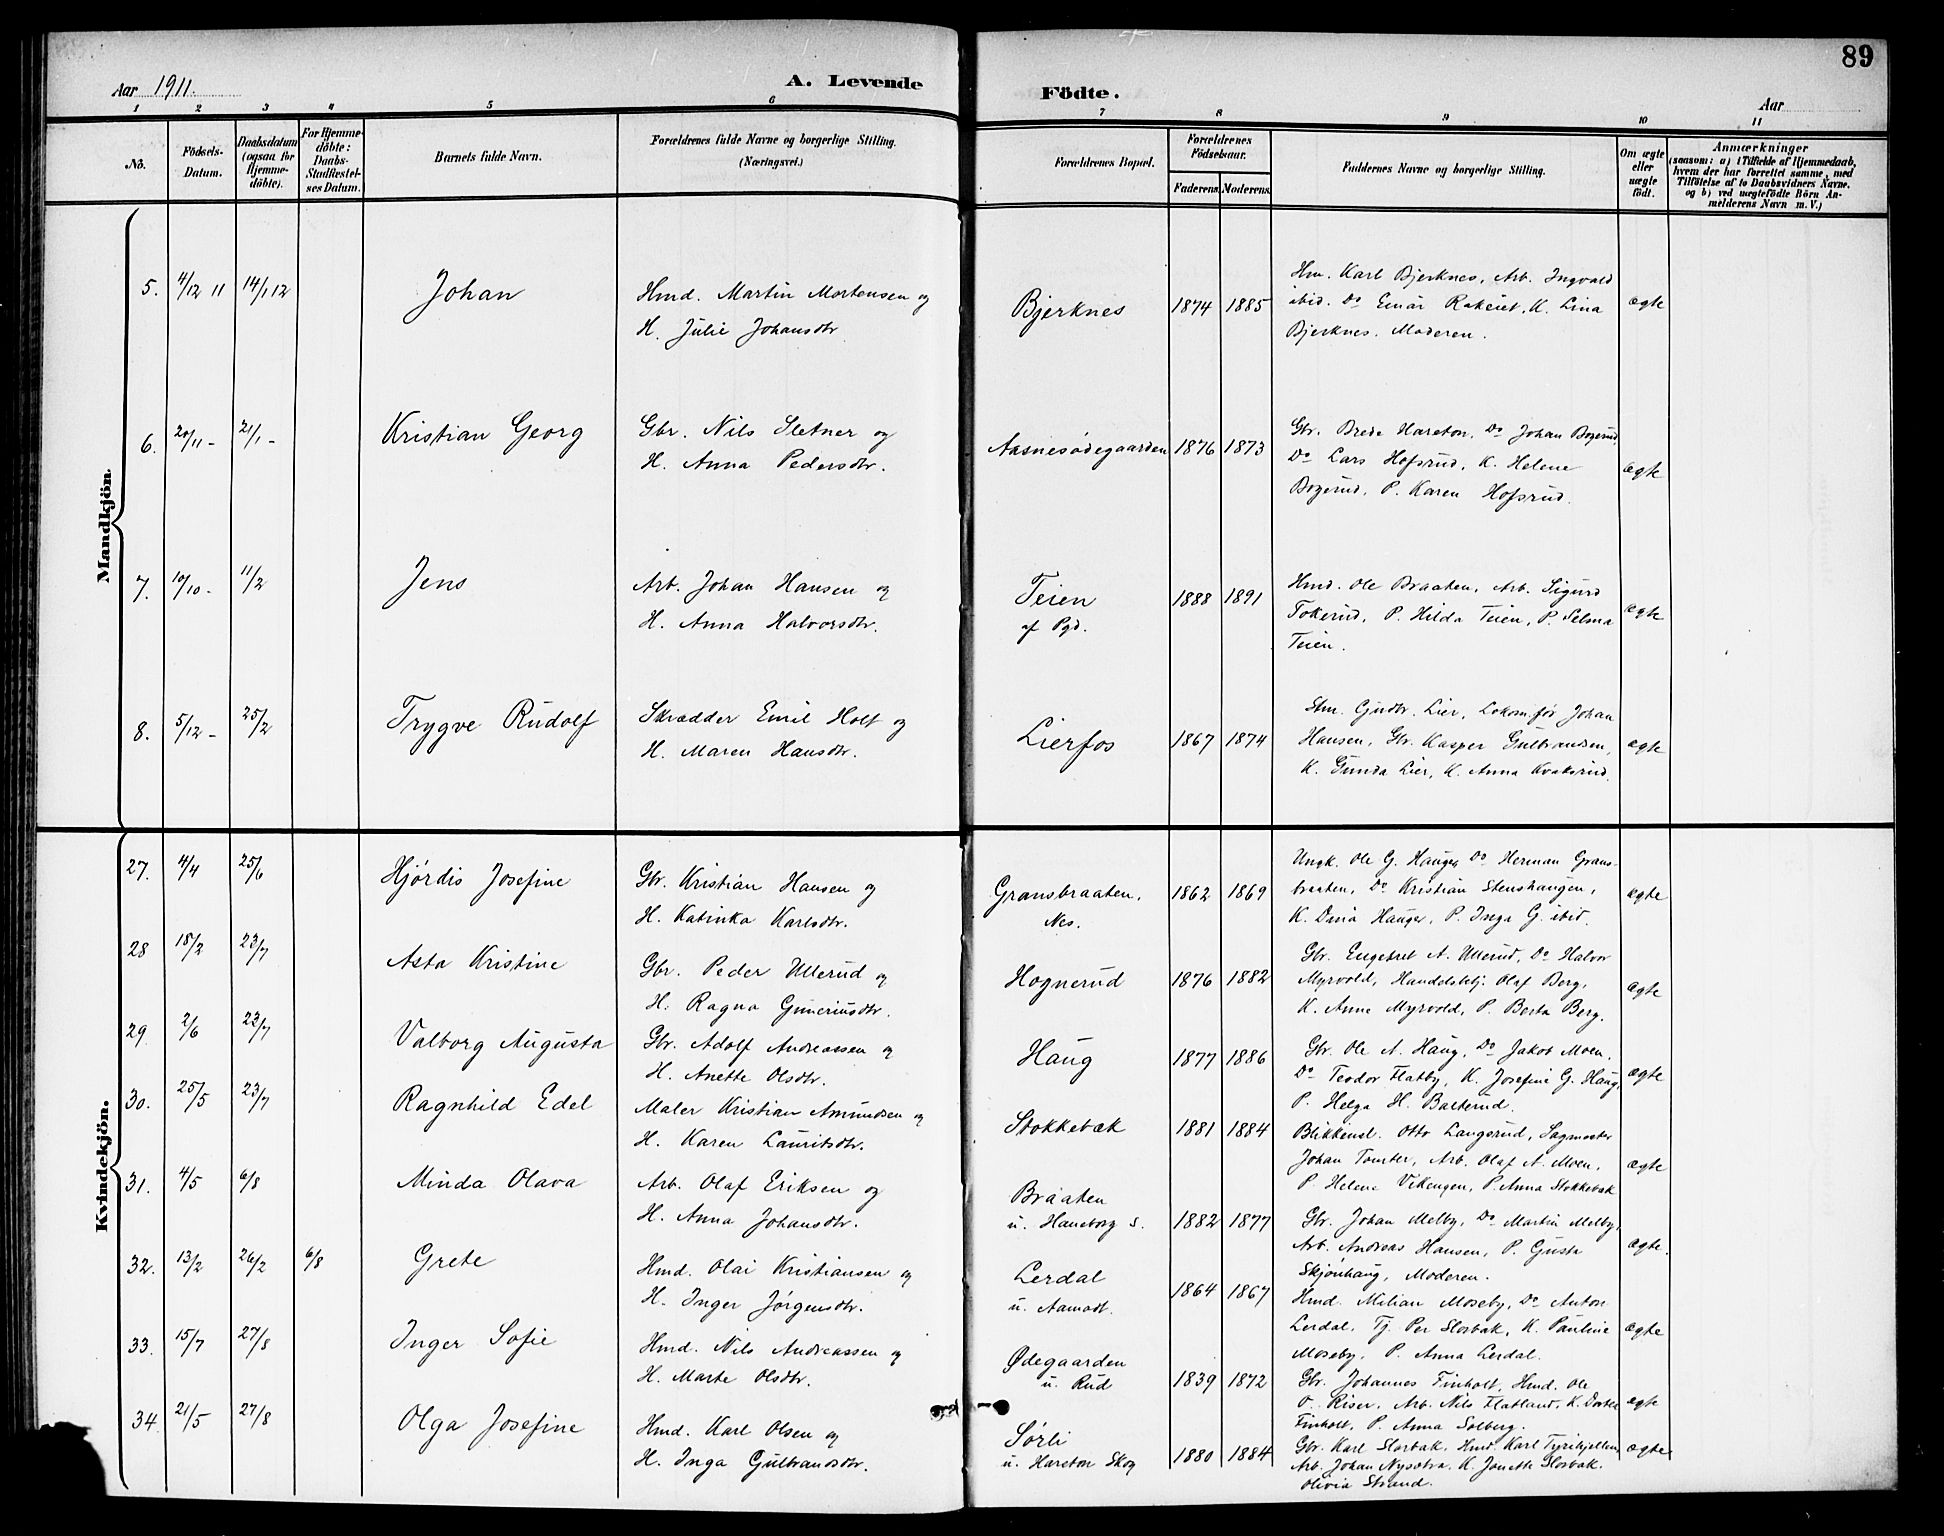 89
Aar 1911.
A. Levende
Födte.
Aar
1 2 3 4 5 6 7 8 9 10 11
No.
Födsels-Datum.
Daabsdatum (ogsaa for Hjemme-döbte).
For Hjemme-döbte: Daabs-Stadfæstel-ses Datum.
Barnets fulde Navn.
Forældrenes fulde Navne og borgerlige Stilling.
(Næringsvei.)
Forældrenes Bopæl.
Forældrenes Födselsaar.
Faderens. Moderens.
Faddernes Navne og borgerlige Stilling.
Om ægte eller uægte födt.
Anmærkninger
(saasom: a) i Tilfælde af Hjemmedaab,
hvem der har forrettet samme, med
Tilföielse af to Daabsvidners Navne.
og b) ved uægtefödte Börn An-
melderens Navn m. V.)
Mandkjön.
5. 4/12 11 14/1 12 Johan
Hmd. Martin Mortensen og
H. Julie Johansdtr.
Bjerknes 1874 1885
Hm. Karl Bjerknes, Arb. Ingvald
ibid. Do Einar Rakeiet, K. Lina
Bjerknes. Moderen.
ægte
6. 20/11 - 21/1 - Kristian Georg
Gbr. Nils Sletner og
H. Anna Pedersdtr.
Aasnesødegaarden 1876 1873
Gbr. Brede Hareton, Do Johan Bogerud,
Do Lars Hofsrud, K. Helene
Bogerud, P. Karen Hofsrud.
ægte
7. 10/10 - 11/2 Jens
Arb. Johan Hansen og
H. Anna Halvorsdtr.
Teien
af Pgd.
1888 1891
Hmd. Ole Braaten, Arb. Sigurd
Tokerud, P. Hilda Teien, P. Selma
Teien.
ægte
8. 5/12 - 25/2 Trygve Rudolf
Skrædder Emil Holt og
H. Maren Hansdtr.
Lierfos 1867 1874
Stm. Gudbr. Lier, Lokom.før Johan
Hansen, Gbr. Kasper Gulbrandsen,
K. Gunda Lier, K. Anna Kvaksrud.
ægte
Kvindekjön.
27. 4/4 25/6 Hjørdis Josefine
Gbr. Kristian Hansen og
H. Katinka Karlsdtr.
Gransbraaten,
Nes.
1862 1869
Ungk. Ole G. Hauger, Do Herman Grans-
braaten, Do Kristian Stenshaugen,
K. Dina Hauger, P. Inga G. ibid.
ægte
28 18/2 23/7 Asta Kristine
Gbr. Peder Ullerud og
H. Ragna Guneriusdtr.
Hognerud 1876 1882
Gbr. Engebret A. Ullerud, Do Halvor
Myrvold, Handelsbtj. Olaf Berg,
K. Anne Myrvold, P. Berta Berg.
ægte
29 2/6 23/7 Valborg Augusta
Gbr. Adolf Andreassen og
H. Anette Olsdtr.
Haug 1877 1886
Gbr. Ole A. Haug, Do Jakob Moen,
Do Teodor Flatby, K. Josefine G. Haug,
P. Helga H. Balterud.
ægte
30. 25/5 23/7 Ragnhild Edel
Maler Kristian Amundsen og
H. Karen Lauritsdtr.
Stokkebæk 1881 1884
Blikkensl. Otto Langsrud, Sagmester
Johan Tomter, Arb. Olaf A. Moen,
P. Helene Vikengen, P. Anna Stokkebæk
ægte
31. 4/5 6/8 Minda Olava
Arb. Olaf Eriksen og
H. Anna Johansdtr.
Braaten
u. Haneborg S.
1882 1877
Gbr. Johan Melby, Do Martin Melby,
Arb. Andreas Hansen, P. Gusta
Skjønhaug, Moderen.
ægte.
32. 13/2 26/2 6/8 Grete
Hmd. Olai Kristiansen og
H. Inger Jørgensdtr.
Lerdal
u. Aamodt.
1864 1867
Hmd. Milian Moseby, Do Anton
Lerdal, Tj. Per Slorbak, K. Pauline
Moseby, P. Anna Lerdal.
ægte
33. 15/7 27/8 Inger Sofie
Hmd. Nils Andreassen og
H. Marte Olsdtr.
Ødegaarden
u. Rud
1839 1872
Gbr. Johannes Finholt, Hmd. Ole
O. Riser, Arb. Nils Flatland, K. Dorte
Finholt, P. Anna Solberg.
ægte
34 21/5 27/8 Olga Josefine
Hmd. Karl Olsen og
H. Inga Gulbrandsdtr.
Sørli
u. Hareton Skog
1880 1884
Gbr. Karl Slorbak, Hmd. Karl Tyrihjellen,
Arb. Johan Nysætra, K. Jonette Slorbak.
Olivia Strand.
ægte